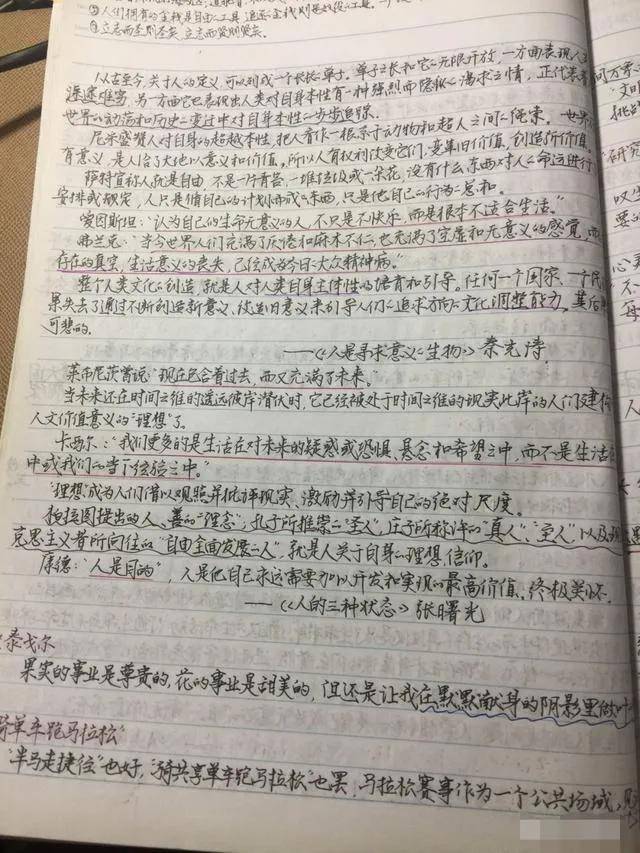 ③人们拥有的金钱是自由的工具,追逐金钱则是奴役的工具。
④立志而圣则圣矣,立志而贤则贤矣。
从古至今,关于人的定义,可以列成一个长长的单子。单子之长和它的无限开放,一方面表现人
另一方面它也表现出人类对自身本性有一种强烈而隐秘的渴求之情,正代表着
世界的动荡和历史的变迁中对自身本性的步步追踪。
尼采盛赞人对自身的超越本性,把人看作一根系于动物和超人之间的绳索。世界
有意义,是人给予大地以意义和价值,所以人有权利改变它们,变革旧价值,创造新价值。
萨特宣称人就是自由,不是一片青苔,一堆垃圾或一朵花,没有什么东西对人的命运进行
安排或规定,人只是循自己的计划而成的东西,只是他自己的行为的总和。
爱因斯坦:“认为自己的生命无意义的人,不只是不快乐,而是根本不适合生活。”
弗兰克:“当今世界人们充满了厌倦和麻木不仁,也充满了空虚和无意义的感觉,
存在的真空,生活意义的丧失,已经成为今日的大众精神病。”
整个人类文化的创造,就是人对人类自身主体性的培育和引导。任何一个国家、一个民
果失去了通过不断创造新意义、改造旧意义来引导人们的追求方向的文化调整能力,其后
可悲的。
——《人是寻求意义的生物》秦光涛
莱布尼茨曾说:“现在包含着过去,而又充满了未来。”
当未来还在时间之维的遥远彼岸潜伏时,它已经被处于时间之维的现实此岸的人们建构
人文价值意义的“理想”了。
卡西尔:“我们更多的是生活在对未来的疑惑或恐惧、悬念和希望之中,而不是生活在
中或我们的当下经验之中。”
“理想”成为人们借以观照并批评现实、激励并引导自己的绝对尺度。
柏拉图提出的人、善的“理念”,孔子所推崇的“圣人”,庄子所称许的“真人”、“至人”,以及
克思主义者所向往的“自由全面发展的人”,就是人关于自身的理想、信仰。
康德:“人是目的”,人是他自己永远需要加以开发和实现的最高价值、终极关怀。
——《人的三种状态》张曙光
泰戈尔
果实的事业是尊贵的,花的事业是甜美的,但还是让我在默默献身的阴影里做叶
骑单车跑马拉松”
“半马走捷径”也好,“骑共享单车跑马拉松”也罢,马拉松赛事作为一个公共场域,